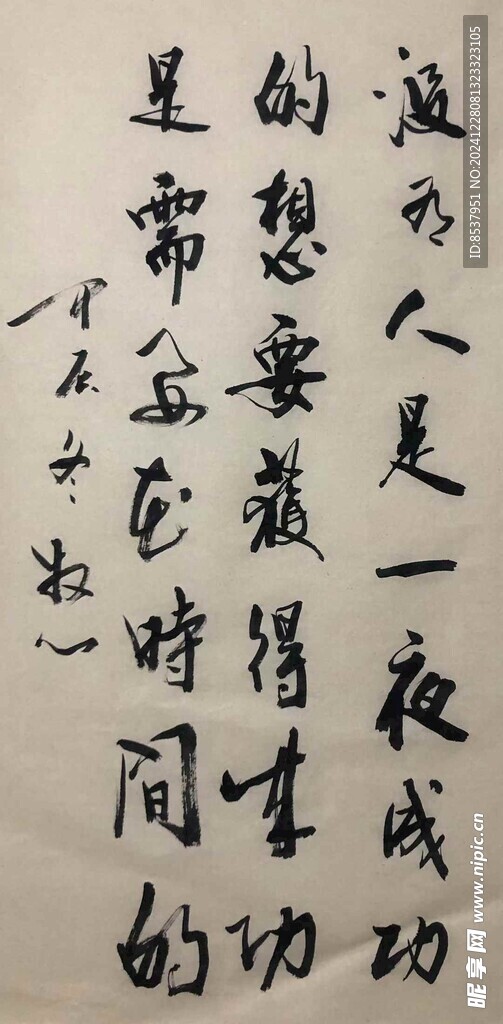 没有人是一夜成功
的想要獲得成功
是需要花時間的
甲辰冬牧心
8537951 NO:20241228081323323105
昵享网 www.nipic.cn